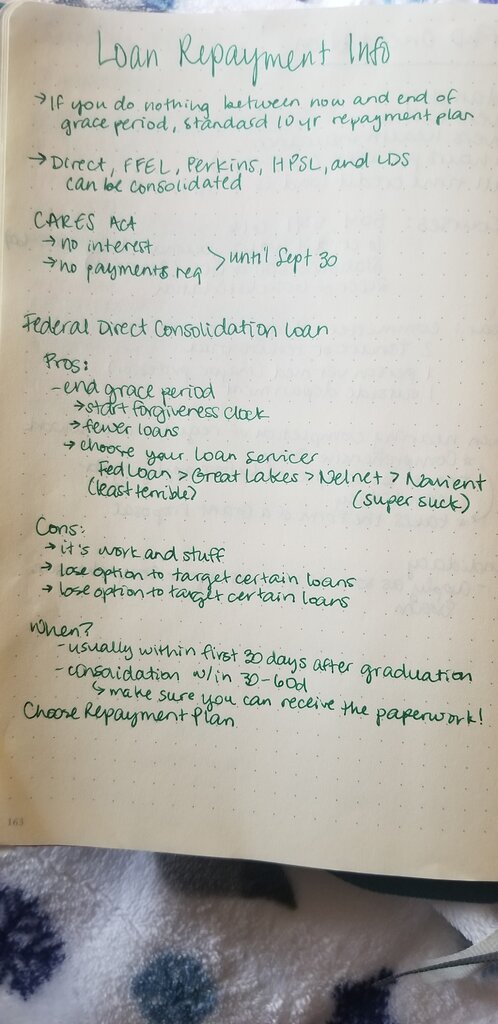 Loan Repayment Info
→ If you do nothing between now and end of
grace period, standard 10 yr repayment plan
→ Direct, FFEL, Perkins, HPSL, and LDS
can be consolidated
CARES Act
→ no interest
→ no payments req > until Sept 30
Federal Direct Consolidation Loan
Pros:
- end grace period
→ start forgiveness clock
→ fewer loans
→ choose your loan servicer
FedLoan > Great Lakes > Nelnet > Navient
(least terrible) (super suck)
Cons:
→ it's work and stuff
→ lose option to target certain loans
→ lose option to target certain loans
When?
- usually within first 30 days after graduation
- consoidation w/in 30-60d
↳ make sure you can receive the paperwork!
Choose Repayment Plan
163